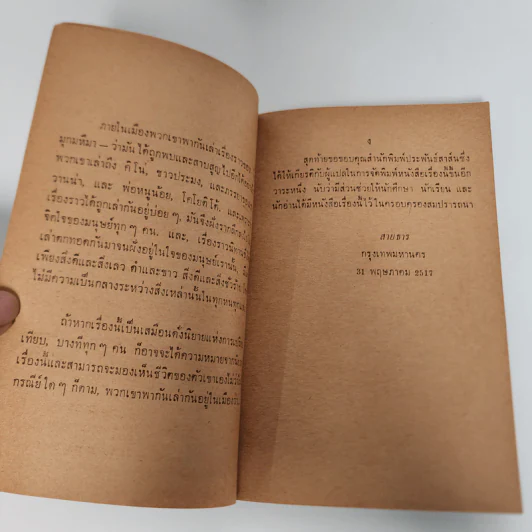 ภายในเมืองพวกเขาพากันเล่าเรื่องราวของ
มุกมหึมา — ว่ามันได้ถูกพบและสาบสูญไปอีกได้
พวกเขาเล่าถึง คีโน่, ชาวประมง, และภรรยาของ
วานน่า, และ พ่อหนูน้อย, โคโยติโต้, และ
เรื่องราวได้ถูกเล่ากันอยู่บ่อย ๆ, มันจึงฝังราก
จิตใจของมนุษย์ทุก ๆ คน, และ, เรื่องราวนิทาน
เล่าตกทอดกันมาจนฝังอยู่ในใจของมนุษย์เรานั้น,
เพียงสิ่งดีและสิ่งเลว ดำและขาว สิ่งดีและสิ่งชั่วร้าย
ไม่มีความเป็นกลางระหว่างสิ่งเหล่านั้นในทุกหนทุก
ถ้าหากเรื่องนี้เป็นเสมือนดั่งนิยายแห่งการ
เทียบ, บางทีทุก ๆ คน ก็อาจจะได้ความหมายจาก
เรื่องนี้และสามารถจะมองเห็นชีวิตของตัวเขาเอง
กรณีย์ใด ๆ ก็ตาม, พวกเขาพากันเล่ากันอยู่ในเมือง
สุดท้ายขอขอบคุณสำนักพิมพ์ประพันธ์สาส์นซึ่ง
ได้ให้เกียรติกับผู้แปลในการจัดพิมพ์หนังสือเรื่องนี้ขึ้นอีก
วาระหนึ่ง นับว่ามีส่วนช่วยให้นักศึกษา นักเรียน และ
นักอ่านได้มีหนังสือเรื่องนี้ไว้ในครอบครองสมปรารถนา
สายธาร
กรุงเทพมหานคร
31 พฤษภาคม 2517